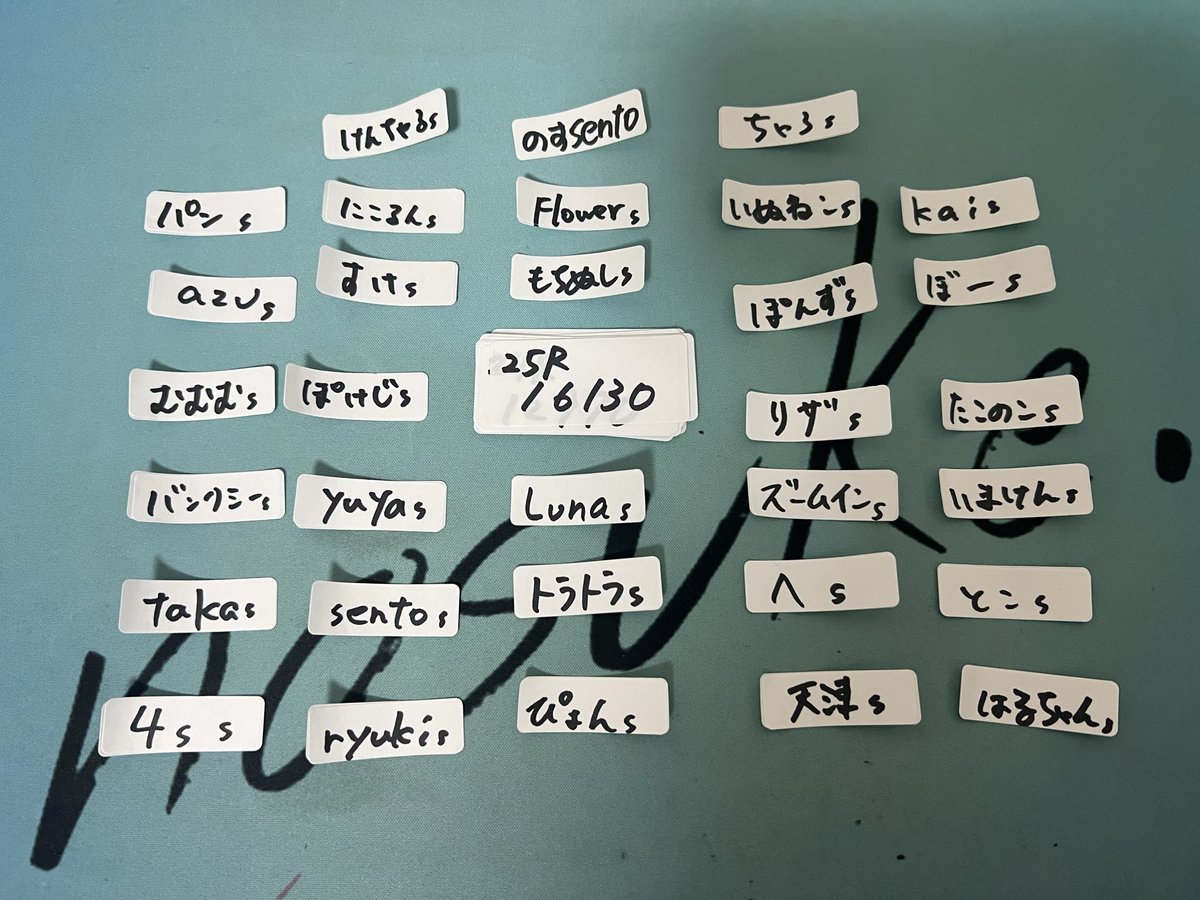 けんちゃるs
のすsento
ちゃるs
パンs
にころんs
Flowers
いぬねこs
kais
azus
すけs
もちぬしs
ぽんずs
ぼーs
むむむs
ぽけじs
25R
16130
リザs
たこのこs
バンクシーs
yuyas
Lunas
ズームインs
いまけんs
takas
sentos
トラトラs
へs
とこs
4ss
ryukis
ぴょんs
天津s
はるちゃんs
nosuke.